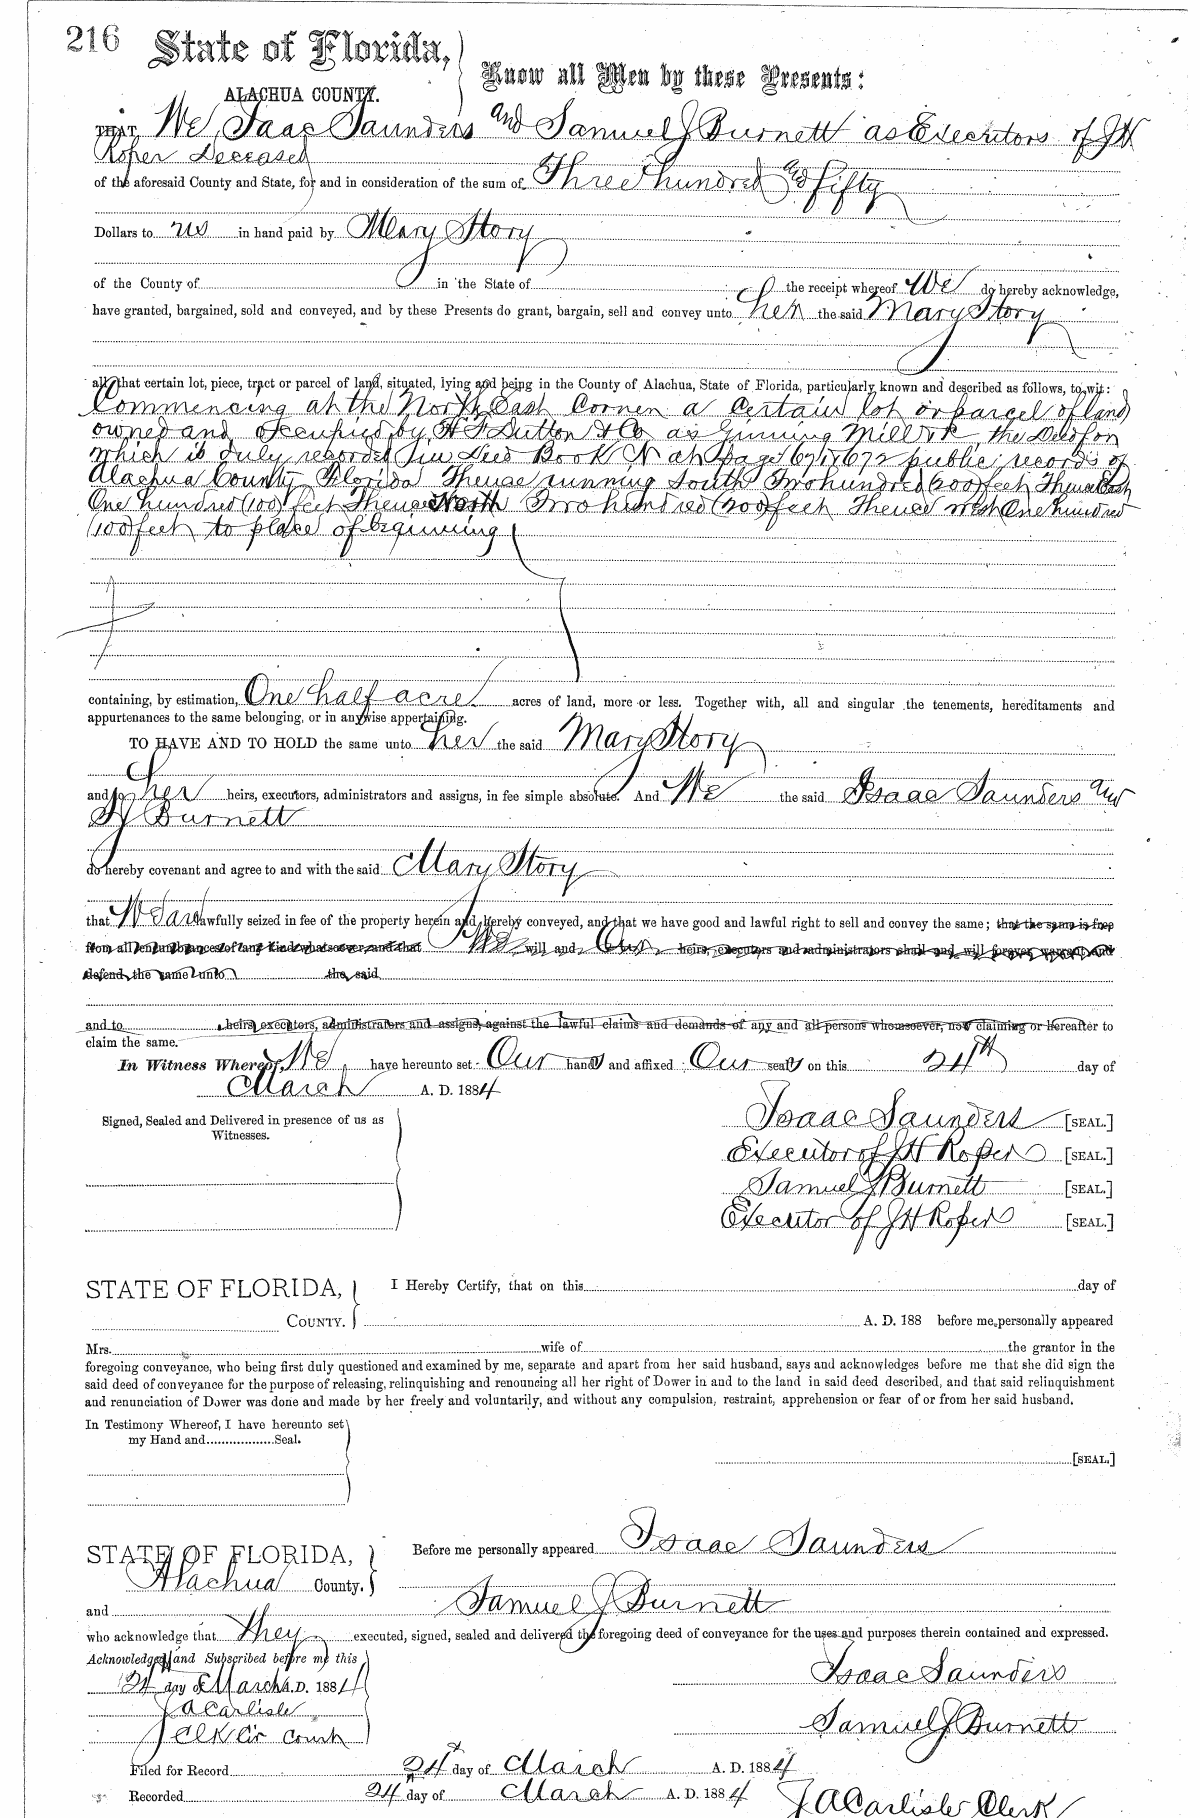 216
State of Florida,
ALACHUA COUNTY.
Know all Men by these Presents:
THAT We Isaac Saunders and Samuel J Burnett as Executors of J H
Roper Deceased
of the aforesaid County and State, for and in consideration of the sum of Three hundred and fifty
Dollars to us in hand paid by Mary Story
of the County of in the State of the receipt whereof We do hereby acknowledge,
have granted, bargained, sold and conveyed, and by these Presents do grant, bargain, sell and convey unto her the said Mary Story
all that certain lot, piece, tract or parcel of land, situated, lying and being in the County of Alachua, State of Florida, particularly known and described as follows, to wit:
Commencing at the North East Corner a certain lot or parcel of land
owned and occupied by H F Dutton & Co as Ginning Mill the Deed for
which is duly recorded in Deed Book N at page 671 672 public records of
Alachua County Florida Thence running South Two hundred (200) feet Thence East
One hundred (100) feet Thence North Two hundred (200) feet Thence west One hundred
(100) feet to place of beginning
containing, by estimation, One half acre acres of land, more or less. Together with, all and singular the tenements, hereditaments and
appurtenances to the same belonging, or in anywise appertaining.
TO HAVE AND TO HOLD the same unto her the said Mary Story
and to her heirs, executors, administrators and assigns, in fee simple absolute. And We the said Isaac Saunders and
S J Burnett
do hereby covenant and agree to and with the said Mary Story
that We are lawfully seized in fee of the property herein and hereby conveyed, and that we have good and lawful right to sell and convey the same; that the same is free
from all encumbrances of any kind whatsoever, and that We will and Our heirs, executors and administrators shall and will forever warrant and
defend the same unto the said
and to heirs, executors, administrators and assigns, against the lawful claims and demands of any and all persons whomsoever, now claiming or hereafter to
claim the same.
In Witness Whereof, We have hereunto set Our hands and affixed Our seals on this 24th day of
March A. D. 1884
Signed, Sealed and Delivered in presence of us as
Witnesses.
Isaac Saunders [SEAL.]
Executor of J H Roper [SEAL.]
Samuel J Burnett [SEAL.]
Executor of J H Roper [SEAL.]
STATE OF FLORIDA, I Hereby Certify, that on this day of
COUNTY. A. D. 188 before me personally appeared
Mrs. wife of the grantor in the
foregoing conveyance, who being first duly questioned and examined by me, separate and apart from her said husband, says and acknowledges before me that she did sign the
said deed of conveyance for the purpose of releasing, relinquishing and renouncing all her right of Dower in and to the land in said deed described, and that said relinquishment
and renunciation of Dower was done and made by her freely and voluntarily, and without any compulsion, restraint, apprehension or fear of or from her said husband.
In Testimony Whereof, I have hereunto set
my Hand and Seal.
[SEAL.]
STATE OF FLORIDA, Before me personally appeared Isaac Saunders
Alachua County.
and Samuel J Burnett
who acknowledge that they executed, signed, sealed and delivered the foregoing deed of conveyance for the uses and purposes therein contained and expressed.
Acknowledged and Subscribed before me this
24 day of March A.D. 1884
J A Carlisle
Clk Cir Court
Isaac Saunders
Samuel J Burnett
Filed for Record 24th day of March A. D. 1884
Recorded 24th day of March A. D. 1884
J A Carlisle Clerk